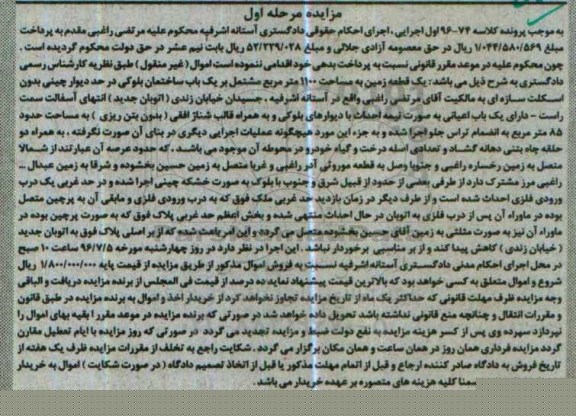 مزایده مرحله اول
به موجب پرونده کلاسه ۷۴-۹۶ اول اجرایی ، اجرای احکام حقوقی دادگستری آستانه اشرفیه محکوم علیه مرتضی راغبی مقدم به پرداخت
مبلغ ۱/۰۴۴/۵۸۰/۵۶۹ ریال در حق معصومه آزادی جلالی و مبلغ ۵۲/۲۲۹/۰۲۸ ریال بابت نیم عشر در حق دولت محکوم گردیده است .
چون محکوم علیه در موعد مقرر قانونی نسبت به پرداخت بدهی خود اقدامی ننموده است اموال ( غیر منقول ) طبق نظریه کارشناس رسمی
دادگستری به شرح ذیل می باشد : یک قطعه زمین به مساحت ۱۱۰۰ متر مربع مشتمل بر یک باب ساختمان بلوکی در حد دیوار چینی بدون
اسکلت سازه ای به مالکیت آقای مرتضی راغبی واقع در آستانه اشرفیه ، جسیدان خیابان زندی ( اتوبان جدید ) انتهای آسفالت سمت
راست - دارای یک باب اعیانی به صورت نیمه احداث با دیوارهای بلوکی و به همراه قالب شناژ افقی ( بدون بتن ریزی ) به مساحت حدود
۸۵ متر مربع به انضمام تراس جلو اجرا شده و به جزء این مورد هیچگونه عملیات اجرایی دیگری در بنای آن صورت نگرفته ، به همراه دو
حلقه چاه بتنی دهانه گشاد و تعدادی اصله درخت و گیاه خودرو در محوطه آن موجود می باشد . که حدود عرصه آن عبارتند از شمالا
متصل به زمین رخساره راغبی و جنوبا وصل به قطعه موروثی آذر راغبی و غربا متصل به زمین حسین بخشوده و شرقا به زمین عبدال ...
راغبی مرز مشترک دارد از طرفی بعضی از حدود از قبیل شرق و جنوب با بلوک به صورت خشکه چینی اجرا شده و در حد غربی یک درب
ورودی فلزی احداث شده است و از طرف دیگر در زمان بازدید حد غربی ملک فوق که به درب ورودی فلزی و مابقی آن به پرچین متصل
بوده در ماوراء آن پس از درب فلزی به اتوبان در حال احداث منتهی شده و بخش اعظم حد غربی پلاک فوق که به صورت پرچین بوده در
ماوراء آن نیز به صورت مثلثی به زمین آقای حسین بخشوده متصل می گردد و این امر باعث شده که از بر اصلی پلاک فوق به اتوبان جدید
( خیابان زندی ) کاش پیدا کند و از بر مناسبی برخوردار نباشد . این اجرا در نظر دارد در روز چهارشنبه مورخه ۹۶/۷/۵ ساعت ۱۰ صبح
در محل اجرای احکام مدنی دادگستری آستانه اشرفیه نسبت به فروش اموال مذکور از طریق مزایده از قیمت پایه ۱/۸۰۰/۰۰۰/۰۰۰ ریال
شروع و اموال متعلق به کسی خواهد بود که بالاترین قیمت پیشنهاد نماید ده درصد از قیمت فی المجلس از برنده مزایده دریافت و الباقی
وجه مزایده ظرف مهلت قانونی که حداکثر یک ماه از تاریخ مزایده تجاوز نخواهد کرد از خریدار اخذ و اموال به برنده مزایده در طبق قانون
و مقررات انتقال و چنانچه منع قانونی نداشته باشد تحویل داده خواهد شد در صورتی که برنده مزایده در موعد مقرر بقیه بهای اموال را
نپردازد سپرده وی پس از کسر هزینه مزایده به نفع دولت ضبط و مزایده تجدید می گردد در صورتی که روز مزایده با ایام تعطیل مقارن
گردد مزایده فردای همان روز در همان ساعت و همان مکان برگزار می گردد . شکایت راجع به تخلف از مقررات مزایده ظرف یک هفته از
تاریخ فروش به دادگاه صادر کننده ارجاع و قبل از اتمام مهلت مذکور یا قبل از اتخاذ تصمیم دادگاه ( در صورت شکایت ) اموال به خریدار
ضمنا کلیه هزینه های متصوره بر عهده خریدار می باشد .